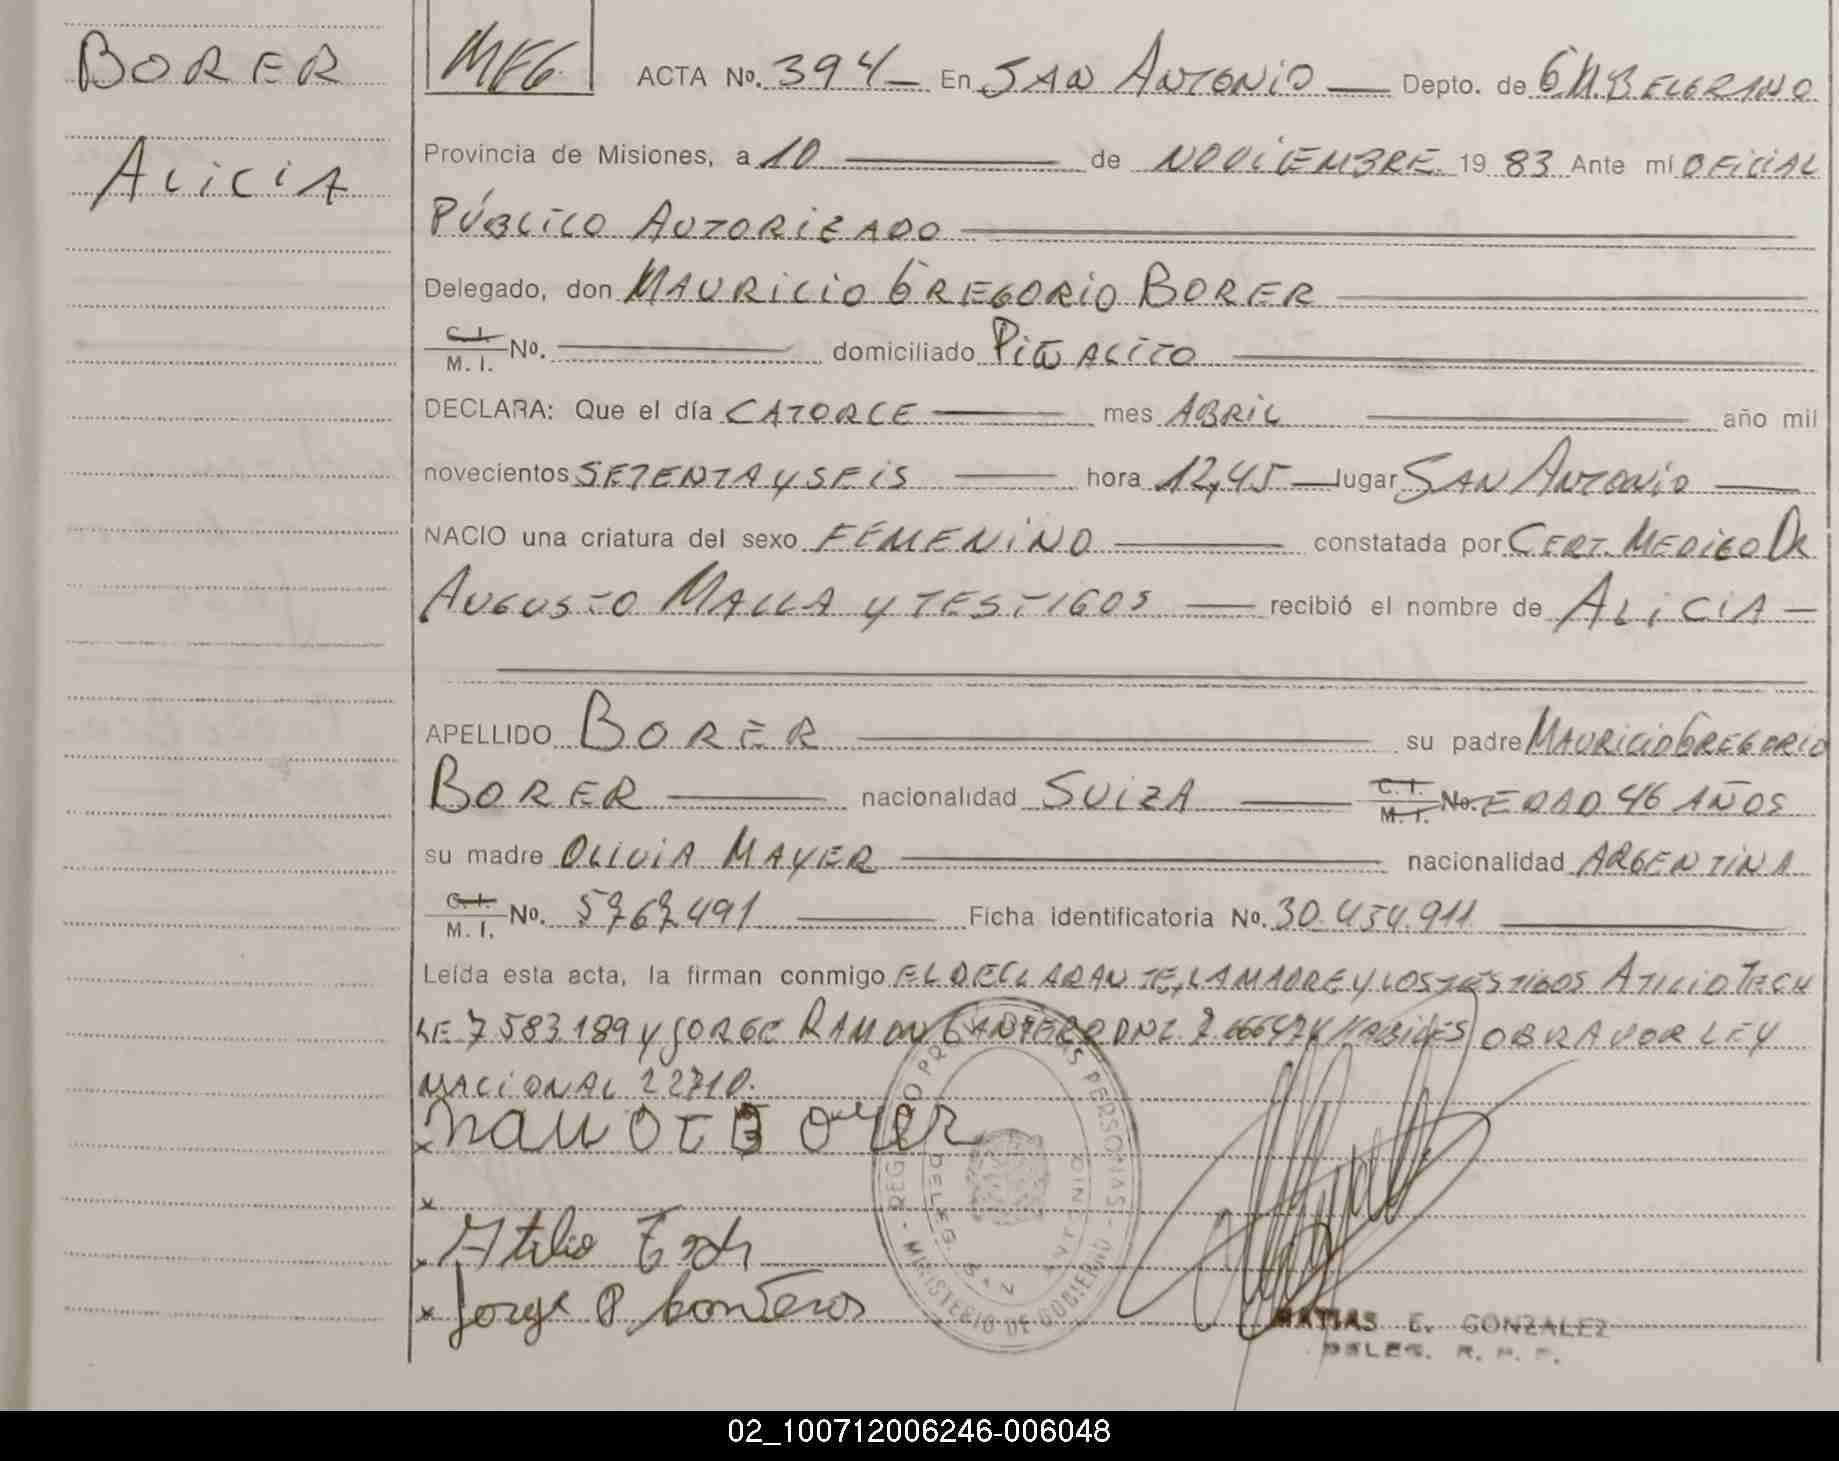 BORER
ALICIA
MEG.
ACTA No. 394 En SAN ANTONIO Depto. de G M. BELGRANO
Provincia de Misiones, a 10 de NOVIEMBRE 19 83 Ante mí OFICIAL
PÚBLICO AUTORIZADO
Delegado, don MAURICIO GREGORIO BORER
C. I. / M. I. No. domiciliado PIÑALITO
DECLARA: Que el día CATORCE mes ABRIL año mil
novecientos SETENTA y SEIS hora 12,45 lugar SAN ANTONIO
NACIO una criatura del sexo FEMENINO constatada por CERT. MEDICO DR
AUGUSTO MALLA y TESTIGOS recibió el nombre de ALICIA
APELLIDO BORER su padre MAURICIO GREGORIO
BORER nacionalidad SUIZA C. I. / M. I. No. EDAD 46 AÑOS
su madre OLIVIA MAYER nacionalidad ARGENTINA
C. I. / M. I. No. 5767491 Ficha identificatoria No. 30.454.911
Leída esta acta, la firman conmigo EL DECLARANTE, LA MADRE y LOS TESTIGOS ATILIO TECH
LE 7 583.189 y JORGE RAMON CANTERO DNI. HABILES OBRA POR LEY
NACIONAL 22710.
x
x
x Atilio
x Jorge R
REGISTRO PROV. DE LAS PERSONAS - MINISTERIO DE GOBIERNO -
DELEG. SAN ANTONIO
MATIAS E. GONZALEZ
DELEG. R. P. P.
02_100712006246-006048